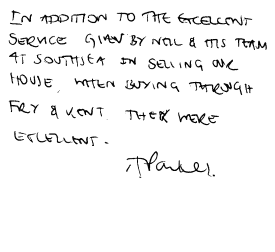 IN ADDITION TO THE EXCELLENT
SERVICE GIVEN BY NEIL & HIS TEAM
AT SOUTHSEA IN SELLING OUR
HOUSE, WHEN BUYING THROUGH
FRY & KENT THEY WERE
EXCELLENT.